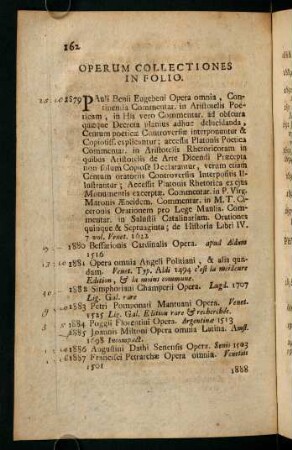 162
OPERUM COLLECTIONES
IN FOLIO.
1879 PAuli Benii Eugebeni Opera omnia, Con-
tinentia Commentar. in Aristotelis Poë-
ticam, in His vero Commentar. ad obscura
quæque Decreta planius adhuc delucidanda,
Centum poeticæ Controversiæ interponuntur &
Copiosiss. explicantur; accessit Platonis Poetica
Commentar. in Aristotelis Rhetoricorum in
quibus Aristotelis de Arte Dicendi Præcepta
non solum Copiosè Declarantur, verum etiam
Centum oratoriis Controversiis Interpositis Il-
lustrantur; Accessit Platonis Rhetorica ex ejus
Monumentis excerptæ. Commentar. in P. Virg.
Maronis Æneidem. Commentar. in M. T. Ci-
ceronis Orationem pro Lege Manlia. Com-
mentar. in Salustii Catalinariam. Orationes
quinque & Septuaginta; de Historia Libri IV.
7 vol. Venet. 1622
1880 Bessarionis Cardinalis Opera. apud Aldum
1516
1881 Opera omnia Angeli Politiani, & alia quæ-
dam. Venet. Typ. Aldi 1494 c'est la meilleure
Edition, & la moins commune.
1882 Simphoriani Champerii Opera. Lugd. 1507
Lig. Gal. rare
1883 Petri Pomponati Mantuani Opera. Venet.
1525 Lig. Gal. Edition rare & recherchée.
1884 Poggii Florentini Opera. Argentinæ 1513
1885 Joannis Miltoni Opera omnia Latina. Amst.
1698 Incompact.
1886 Augustini Dathi Senensis Opera. Senis 1503
1887 Francisci Petrarchæ Opera omnia. Venetiis
1501
1888